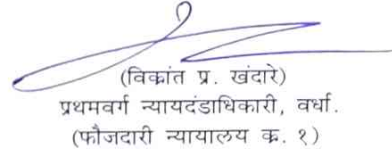 (विक्रांत प्र. खंदारे)
प्रथमवर्ग न्यायदंडाधिकारी, वर्धा.
(फौजदारी न्यायालय क्र. १)